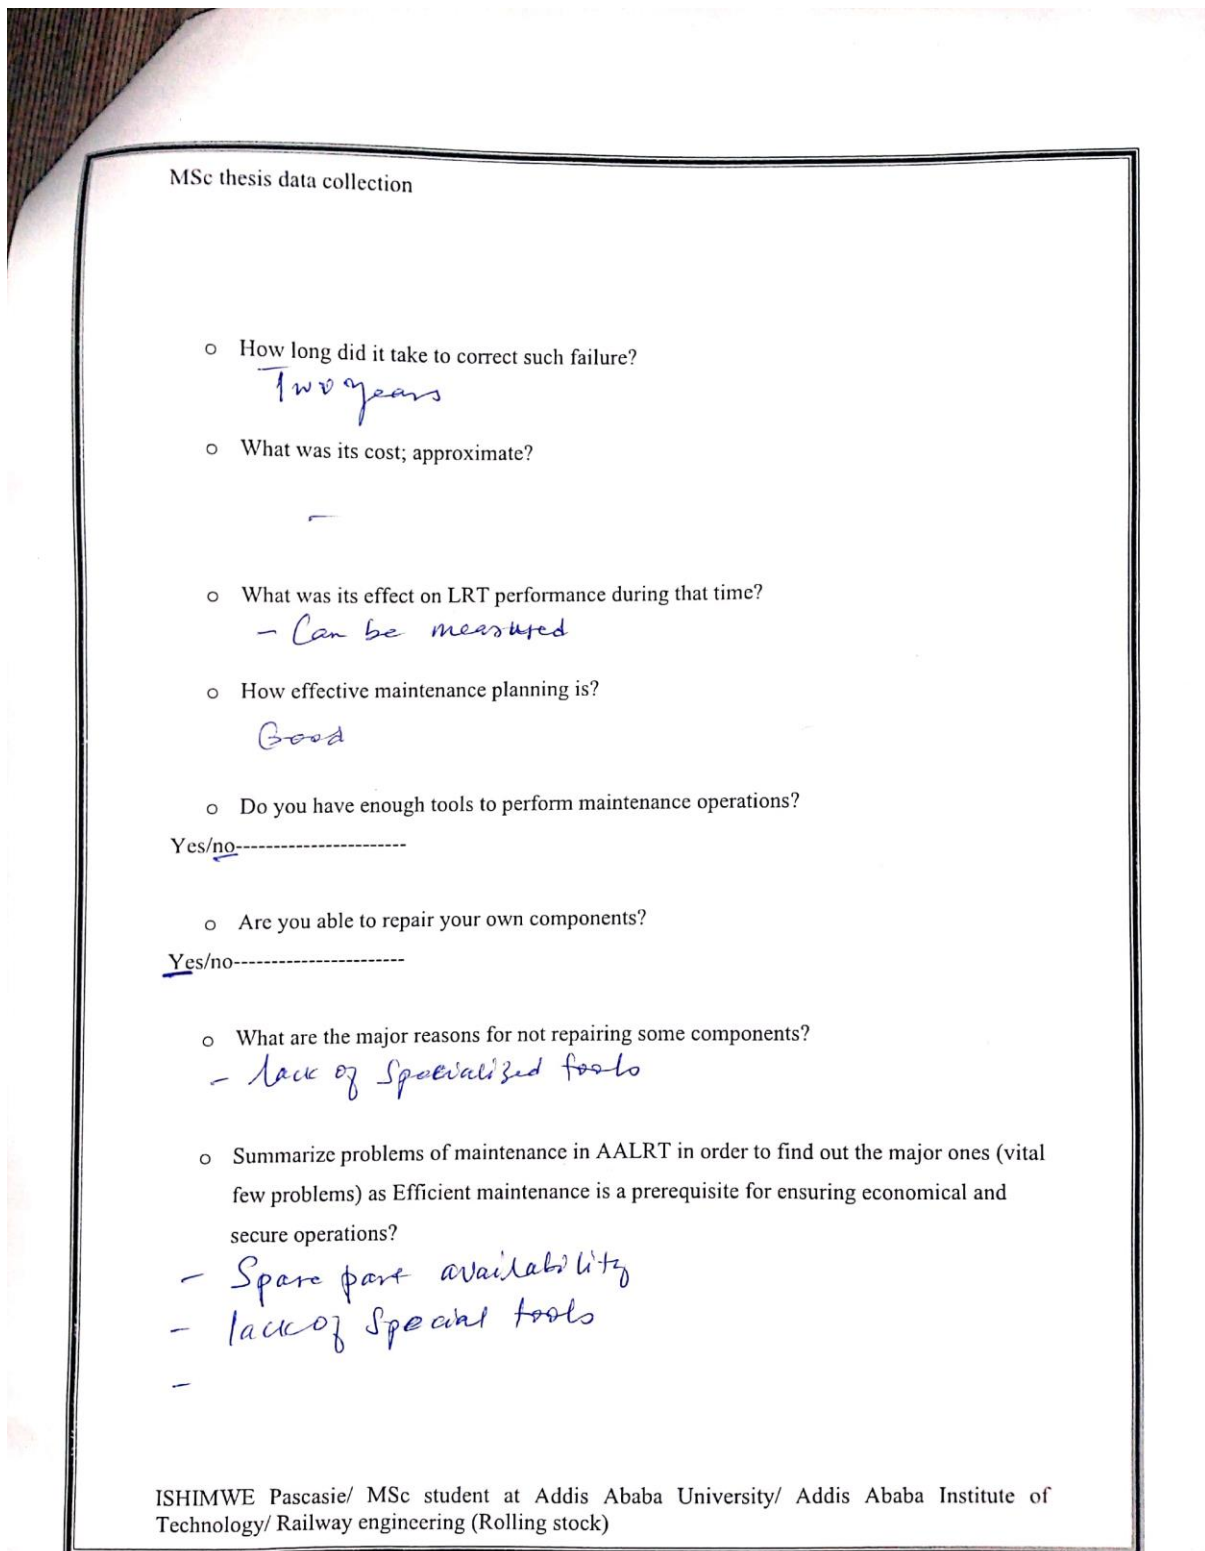 MSc thesis data collection
o How long did it take to correct such failure?
Two years
o What was its cost; approximate?
-
o What was its effect on LRT performance during that time?
- Can be measured
o How effective maintenance planning is?
Good
o Do you have enough tools to perform maintenance operations?
Yes/no-----------------------
o Are you able to repair your own components?
Yes/no-----------------------
o What are the major reasons for not repairing some components?
- lack of Specialized tools
o Summarize problems of maintenance in AALRT in order to find out the major ones (vital
few problems) as Efficient maintenance is a prerequisite for ensuring economical and
secure operations?
- Spare part availability
- lack of Special tools
-
ISHIMWE Pascasie/ MSc student at Addis Ababa University/ Addis Ababa Institute of
Technology/ Railway engineering (Rolling stock)